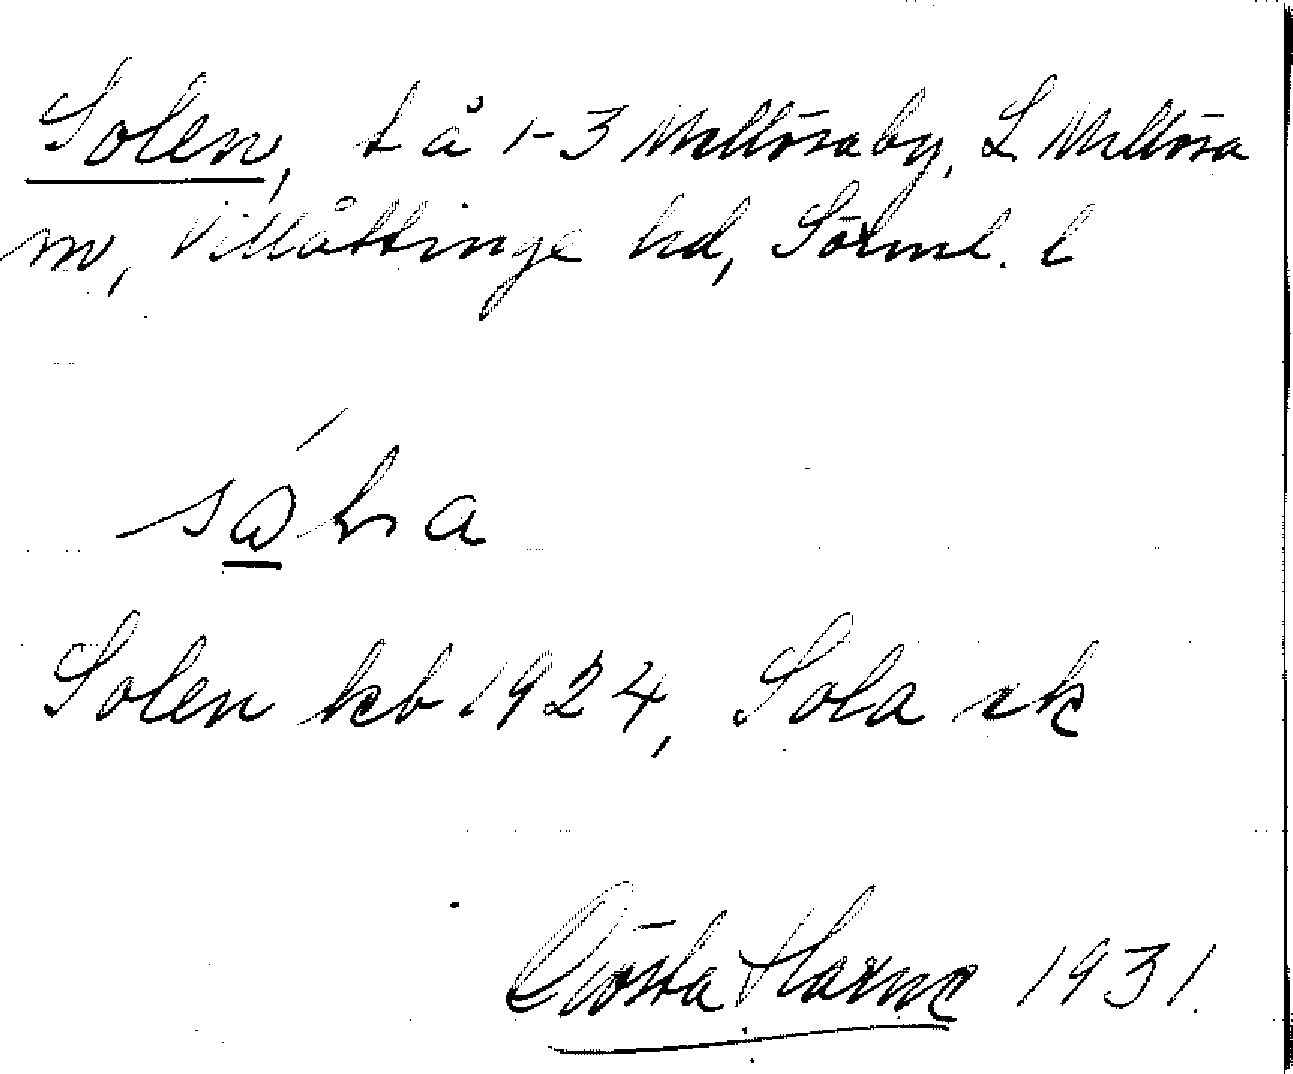 Solen, t å 1-3 Mellösaby, L Mellösa
sn, Villåttinge hd, Sörml. l
Solen kb 1924, Sola sk
Gösta Harne 1931.